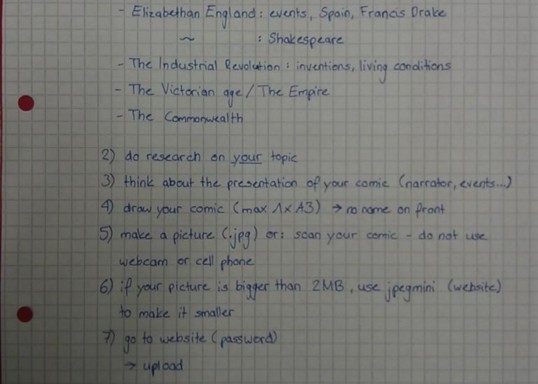 - Elizabethan England: events, Spain, Francis Drake
~ : Shakespeare
- The Industrial Revolution: inventions, living conditions
- The Victorian age / The Empire
- The Commonwealth
2) do research on your topic
3) think about the presentation of your comic (narrator, events...)
4) draw your comic (max 1x A3) → no name on front
5) make a picture (.jpg) or: scan your comic - do not use
webcam or cell phone
6) if your picture is bigger than 2MB, use jpegmini (website)
to make it smaller
7) go to website (password)
→ upload